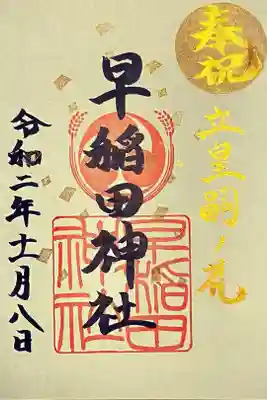 奉祝
立皇嗣ノ礼
早稲田神社
早稲田神社
令和二年十一月八日